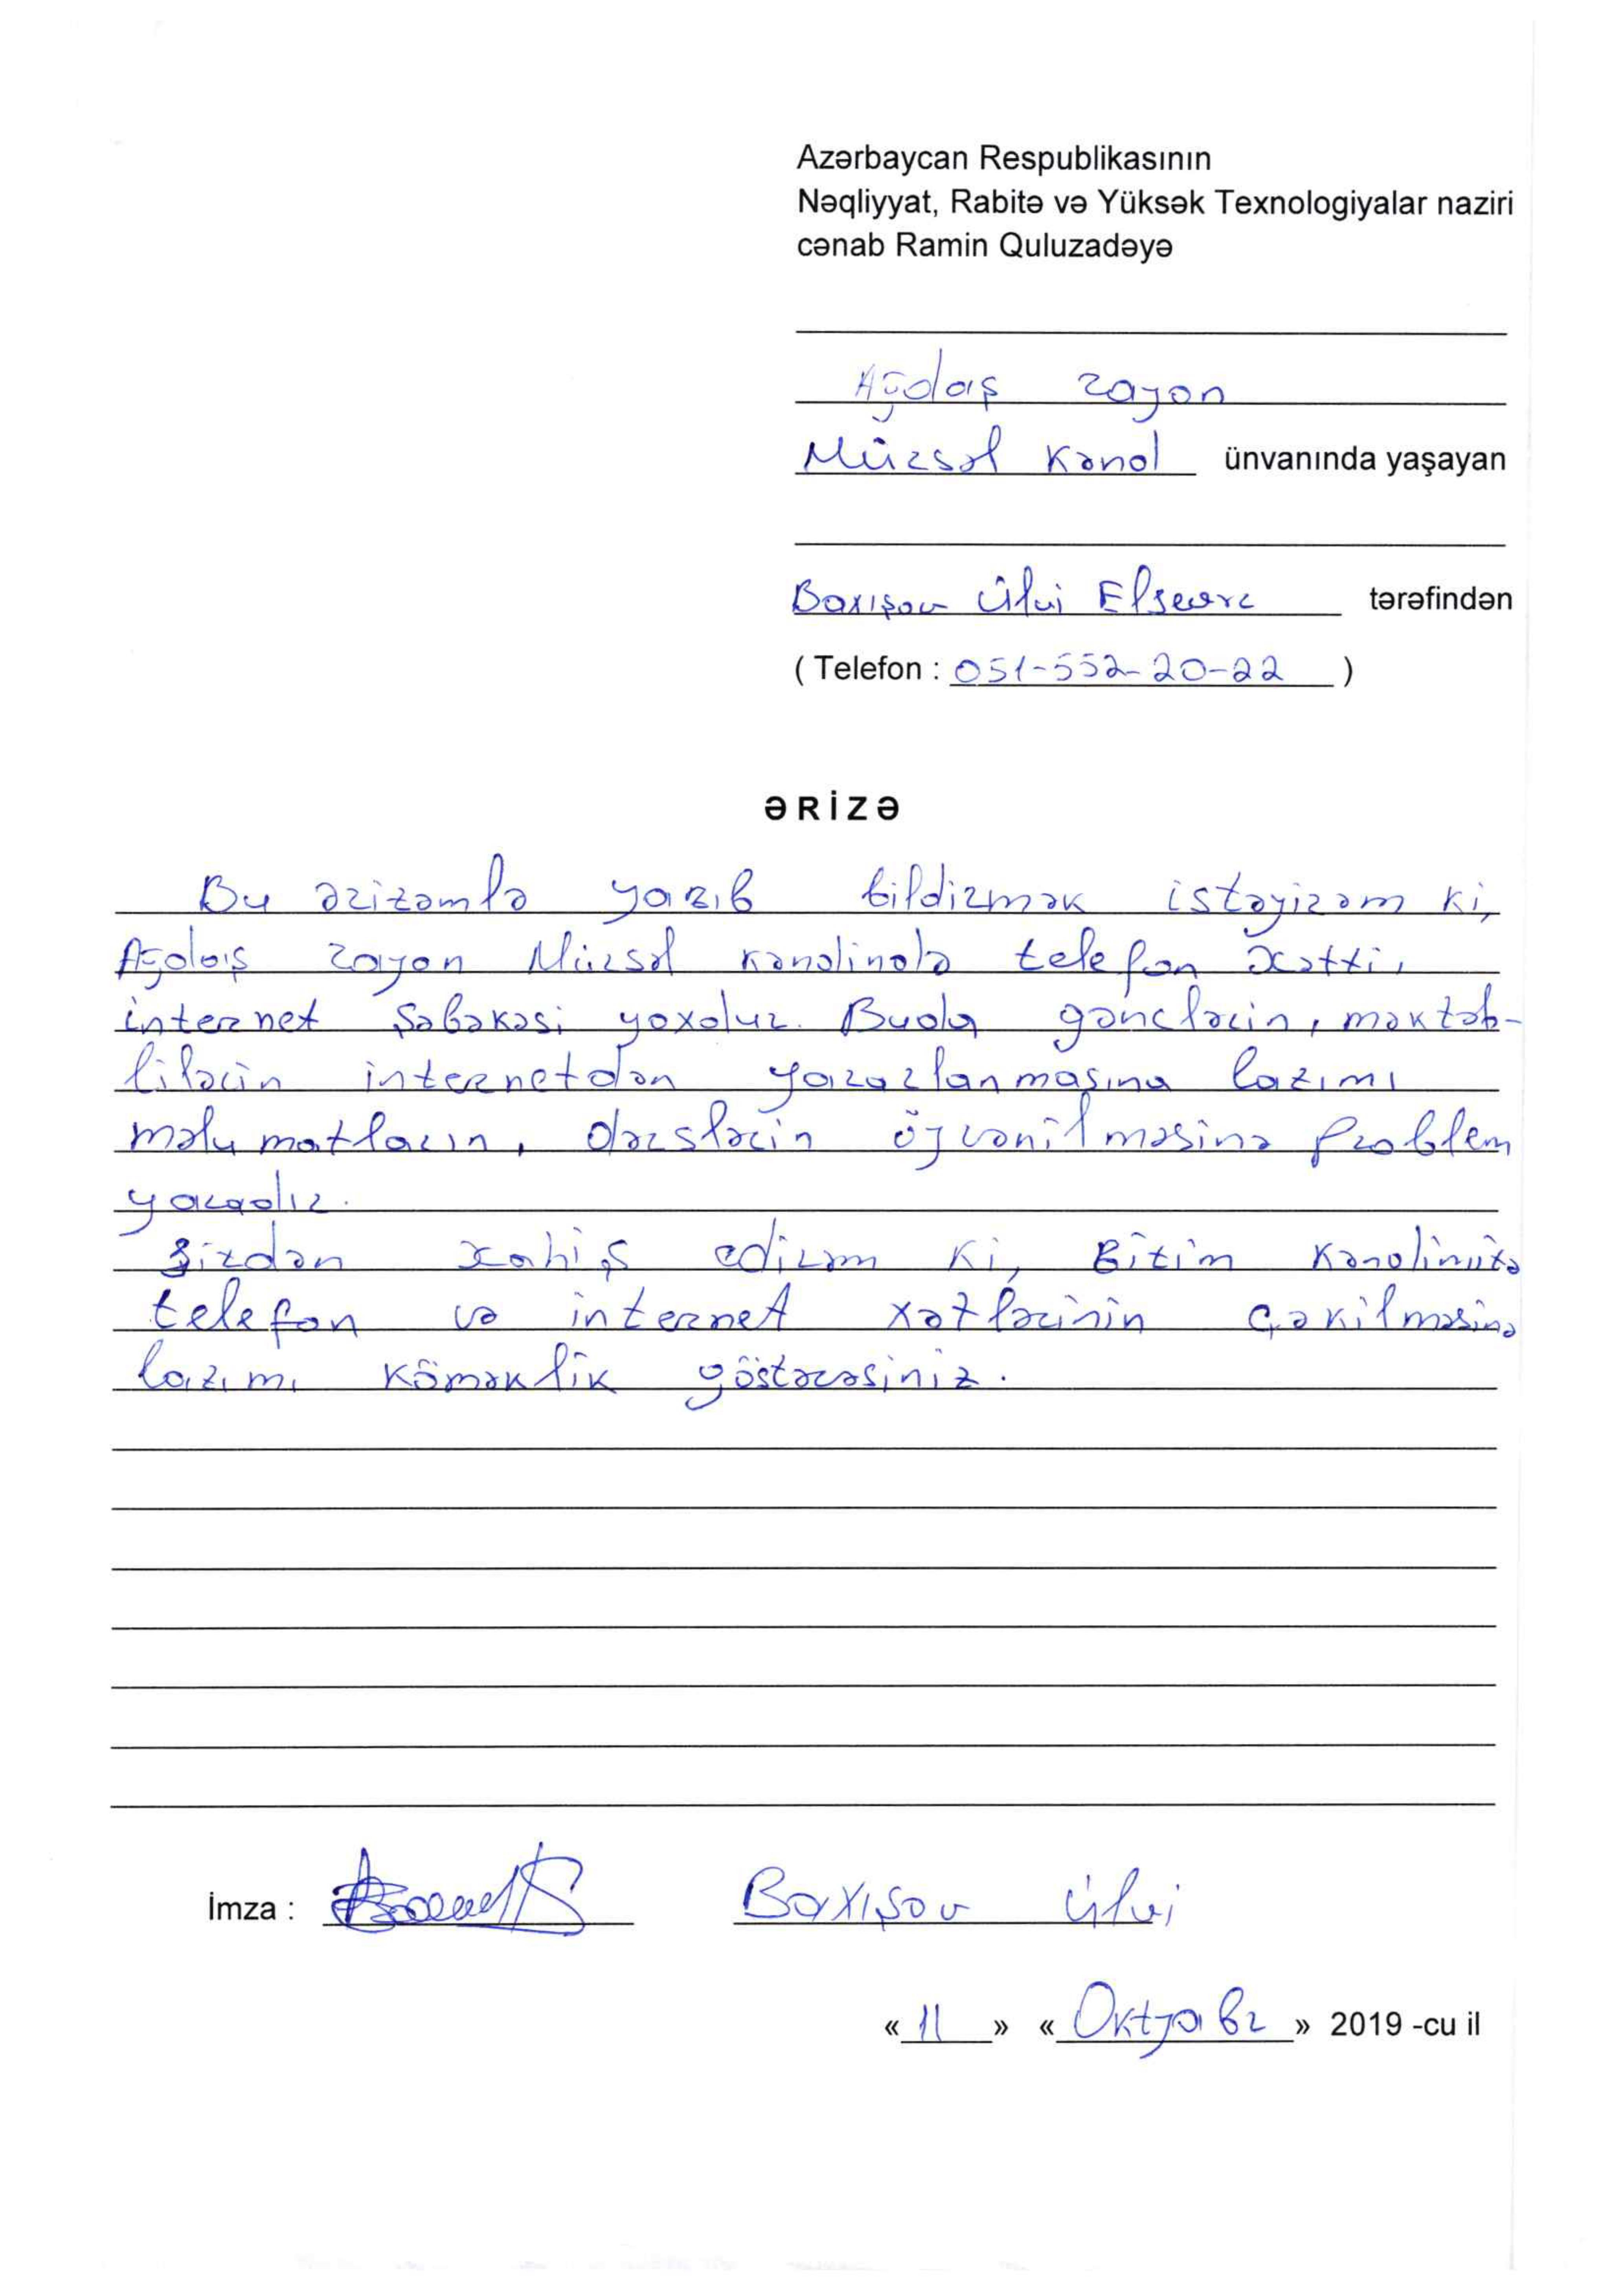 Azərbaycan Respublikasının
Nəqliyyat, Rabitə və Yüksək Texnologiyalar naziri
cənab Ramin Quluzadəyə
Ağdaş rayon
Mürsəl kənd ünvanında yaşayan
Baxışov Ülvi Elsevər tərəfindən
( Telefon : 051-552-20-22 )
ƏRİZƏ
Bu ərizəmlə yazıb bildirmək istəyirəm ki,
Ağdaş rayon Mürsəl kəndində telefon xətti,
internet şəbəkəsi yoxdur. Buda gənclərin, məktəb-
lilərin internetdən yararlanmasına lazımı
məlumatların, dərslərin öyrənilməsinə problem
yaradır.
Sizdən xahiş edirəm ki, Bizim kəndimizə
telefon və internet xətlərinin çəkilməsinə
lazımı köməklik göstərəsiniz.
İmza : Baxışov Ülvi
« 11 » « Oktyabr » 2019 -cu il